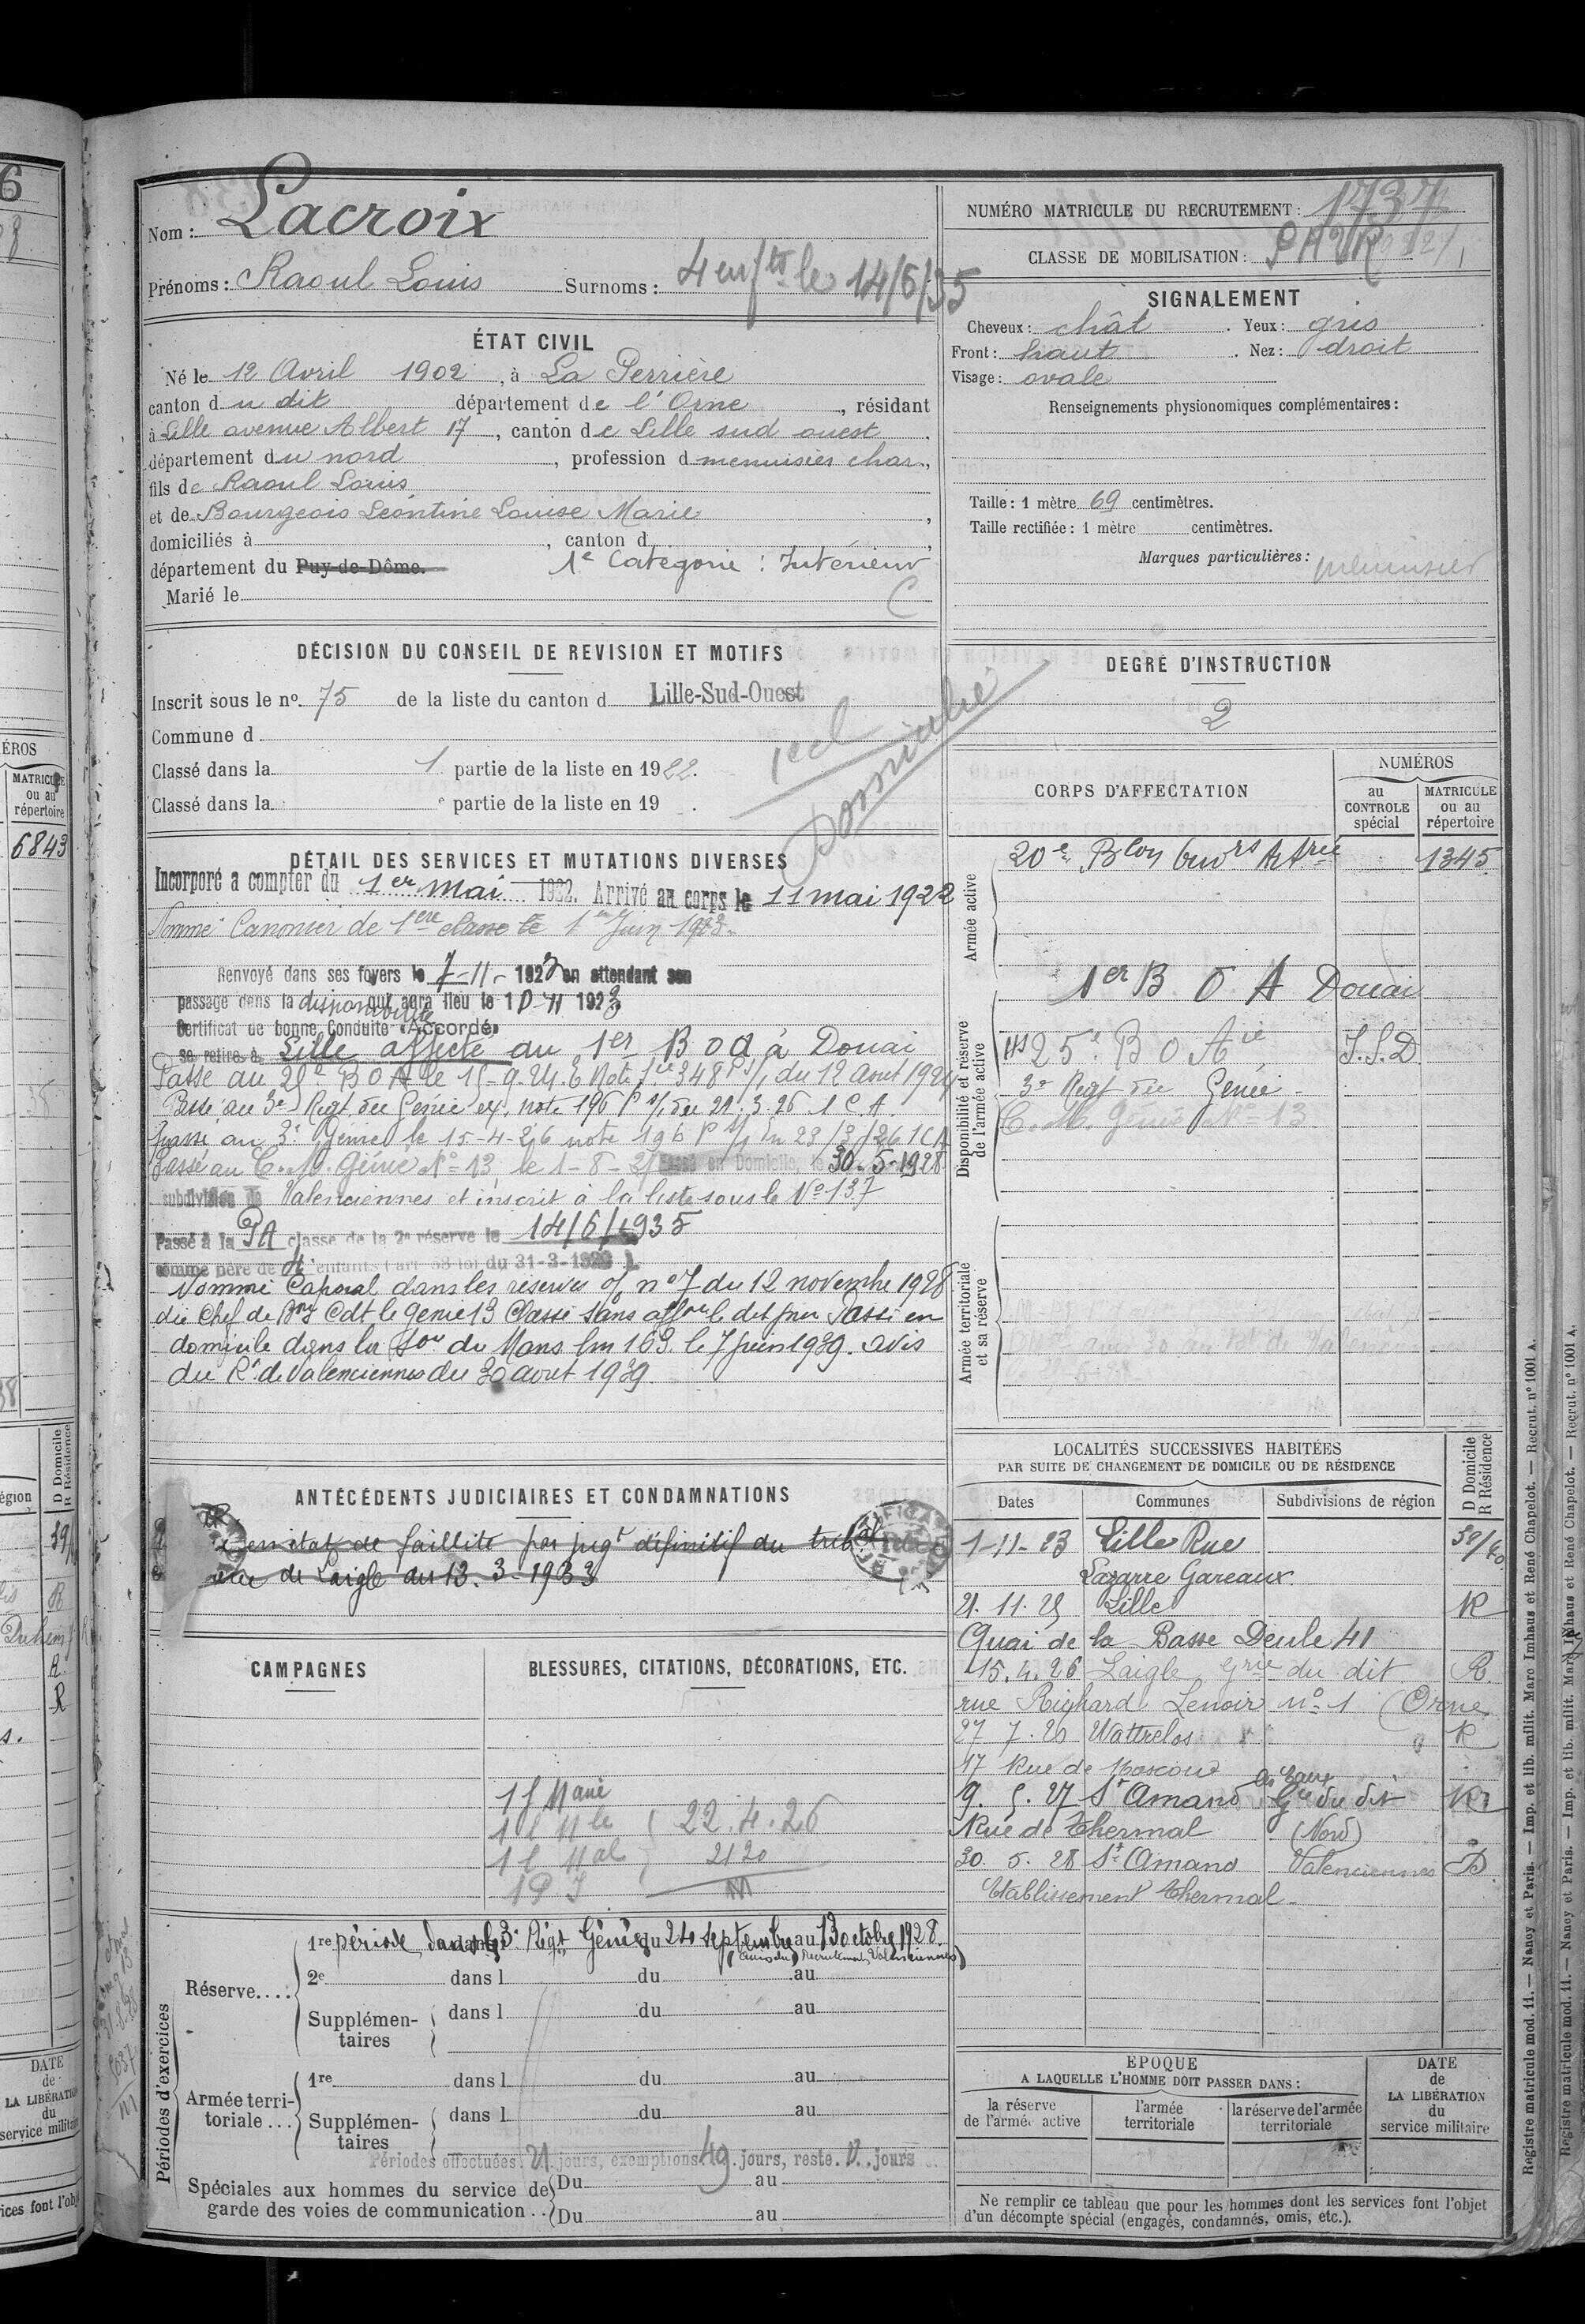 Nom : Lacroix
Prénoms : Raoul Louis Surnoms : 4 enfts le 14/6/35
NUMÉRO MATRICULE DU RECRUTEMENT : 1737
CLASSE DE MOBILISATION : PAVR
ÉTAT CIVIL
Né le 12 Avril 1902, à La Perrière
canton du dit département de l'Orne, résidant
à Lille avenue Albert 17, canton de Lille sud ouest
département du nord, profession d menuisier char.,
fils de Raoul Louis
et de Bourgeois Léontine Louise Marie,
domiciliés à , canton d ,
département du Puy-de-Dôme. 1e Categorie : Intérieur
C
Marié le
SIGNALEMENT
Cheveux : chât. Yeux : gris
Front : haut. Nez : droit
Visage : ovale
Renseignements physionomiques complémentaires :
Taille : 1 mètre 69 centimètres.
Taille rectifiée : 1 mètre centimètres.
Marques particulières : menuisier
DÉCISION DU CONSEIL DE REVISION ET MOTIFS
Inscrit sous le no 75 de la liste du canton d Lille-Sud-Ouest
Commune d
Classé dans la 1 partie de la liste en 1922.
Classé dans la e partie de la liste en 19 .
DEGRÉ D'INSTRUCTION
2
DÉTAIL DES SERVICES ET MUTATIONS DIVERSES
Incorporé à compter du 1er mai 1922. Arrivé au corps le 11 mai 1922
Nommé Canonier de 1ere classe le 1er Juin 1923.
Renvoyé dans ses foyers le 7-11-1923 en attendant son
passage dans la disponibilité qui aura lieu le 10-11 1923
Certificat de bonne Conduite "Accordé"
se retire à Lille affecté au 1er B O A à Douai
Passé au 25e B O A le 15-9-24. Note 348 P s/1 du 12 Aout 1924
Passé au 3e Regt du Génie ex. note 196 P s/1 du 21.3.26 1 C A.
Passé au 3e Génie le 15-4-26 note 196 P s/1 du 23/3/26 1CA
Passé au C.M. Génie No 13, le 1-8-27 Passé en Domicile, le 30-5-1928
subdivision de Valenciennes et inscrit à la liste sous le No 137
Passé à la PA classe de la 2e réserve le 14/6/1935
comme père de 4 enfants (art 58 loi du 31-3-1928).
Nommé Caporal dans les réserves o/ no 7 du 12 novembre 1928
du Chef de Bon Cdt le génie 13 Classé Sans affon Passé en
domicile dans la Son du Mans lm 169 le 7 juin 1939. avis
du Rt de Valenciennes du 30 aout 1939
CORPS D'AFFECTATION
NUMÉROS
au CONTROLE spécial
MATRICULE ou au répertoire
Armée active
20e Blon Ouvrs Artrie 1345
Disponibilité et réserve de l'armée active
1er B O A Douai
25e B O Aie S.S.D
3e Regt du Génie
C.M. Génie No 13
Armée territoriale et sa réserve
ANTÉCÉDENTS JUDICIAIRES ET CONDAMNATIONS
en état de faillite par jugt définitif du tribal
de Laigle du 13.3-1933
LOCALITÉS SUCCESSIVES HABITÉES
PAR SUITE DE CHANGEMENT DE DOMICILE OU DE RÉSIDENCE
Dates Communes Subdivisions de région D Domicile R Résidence
1-11-23 Lille Rue
Lazarre Gareaux
21.11.25 Lille R
Quai de la Basse Deule 41
15.4.26 Laigle Grie du dit R.
rue Richard Lenoir no 1 (Orne
27 7.26 Wattrelos R
17 Rue de Moscou
9.5.27 St Amand les Eaux Gie du dit R
Rue de Thermal (Nord)
30.5.28 St Amand Valenciennes D
Etablissement thermal
CAMPAGNES
BLESSURES, CITATIONS, DÉCORATIONS, ETC.
22.4.26
2120
M
Périodes d'exercices
Réserve....
1re période dans le 3e Régt Génie du 24 septembre au 13 octobre 1928.
(avis du Recrutement Valenciennes)
2e dans l du au
Supplémentaires dans l du au
Armée territoriale...
1re dans l du au
Supplémentaires dans l du au
Périodes effectuées 21 jours, exemptions 49 jours, reste 0 jours
Spéciales aux hommes du service de garde des voies de communication..
Du au
Du au
EPOQUE
A LAQUELLE L'HOMME DOIT PASSER DANS :
la réserve de l'armée active
l'armée territoriale
la réserve de l'armée territoriale
DATE de LA LIBÉRATION du service militaire
Ne remplir ce tableau que pour les hommes dont les services font l'objet
d'un décompte spécial (engagés, condamnés, omis, etc.).
Registre matricule mod. 11. — Nancy et Paris. — Imp. et lib. milit. Marc Imhaus et René Chapelot. — Recrut. no 1001 A.